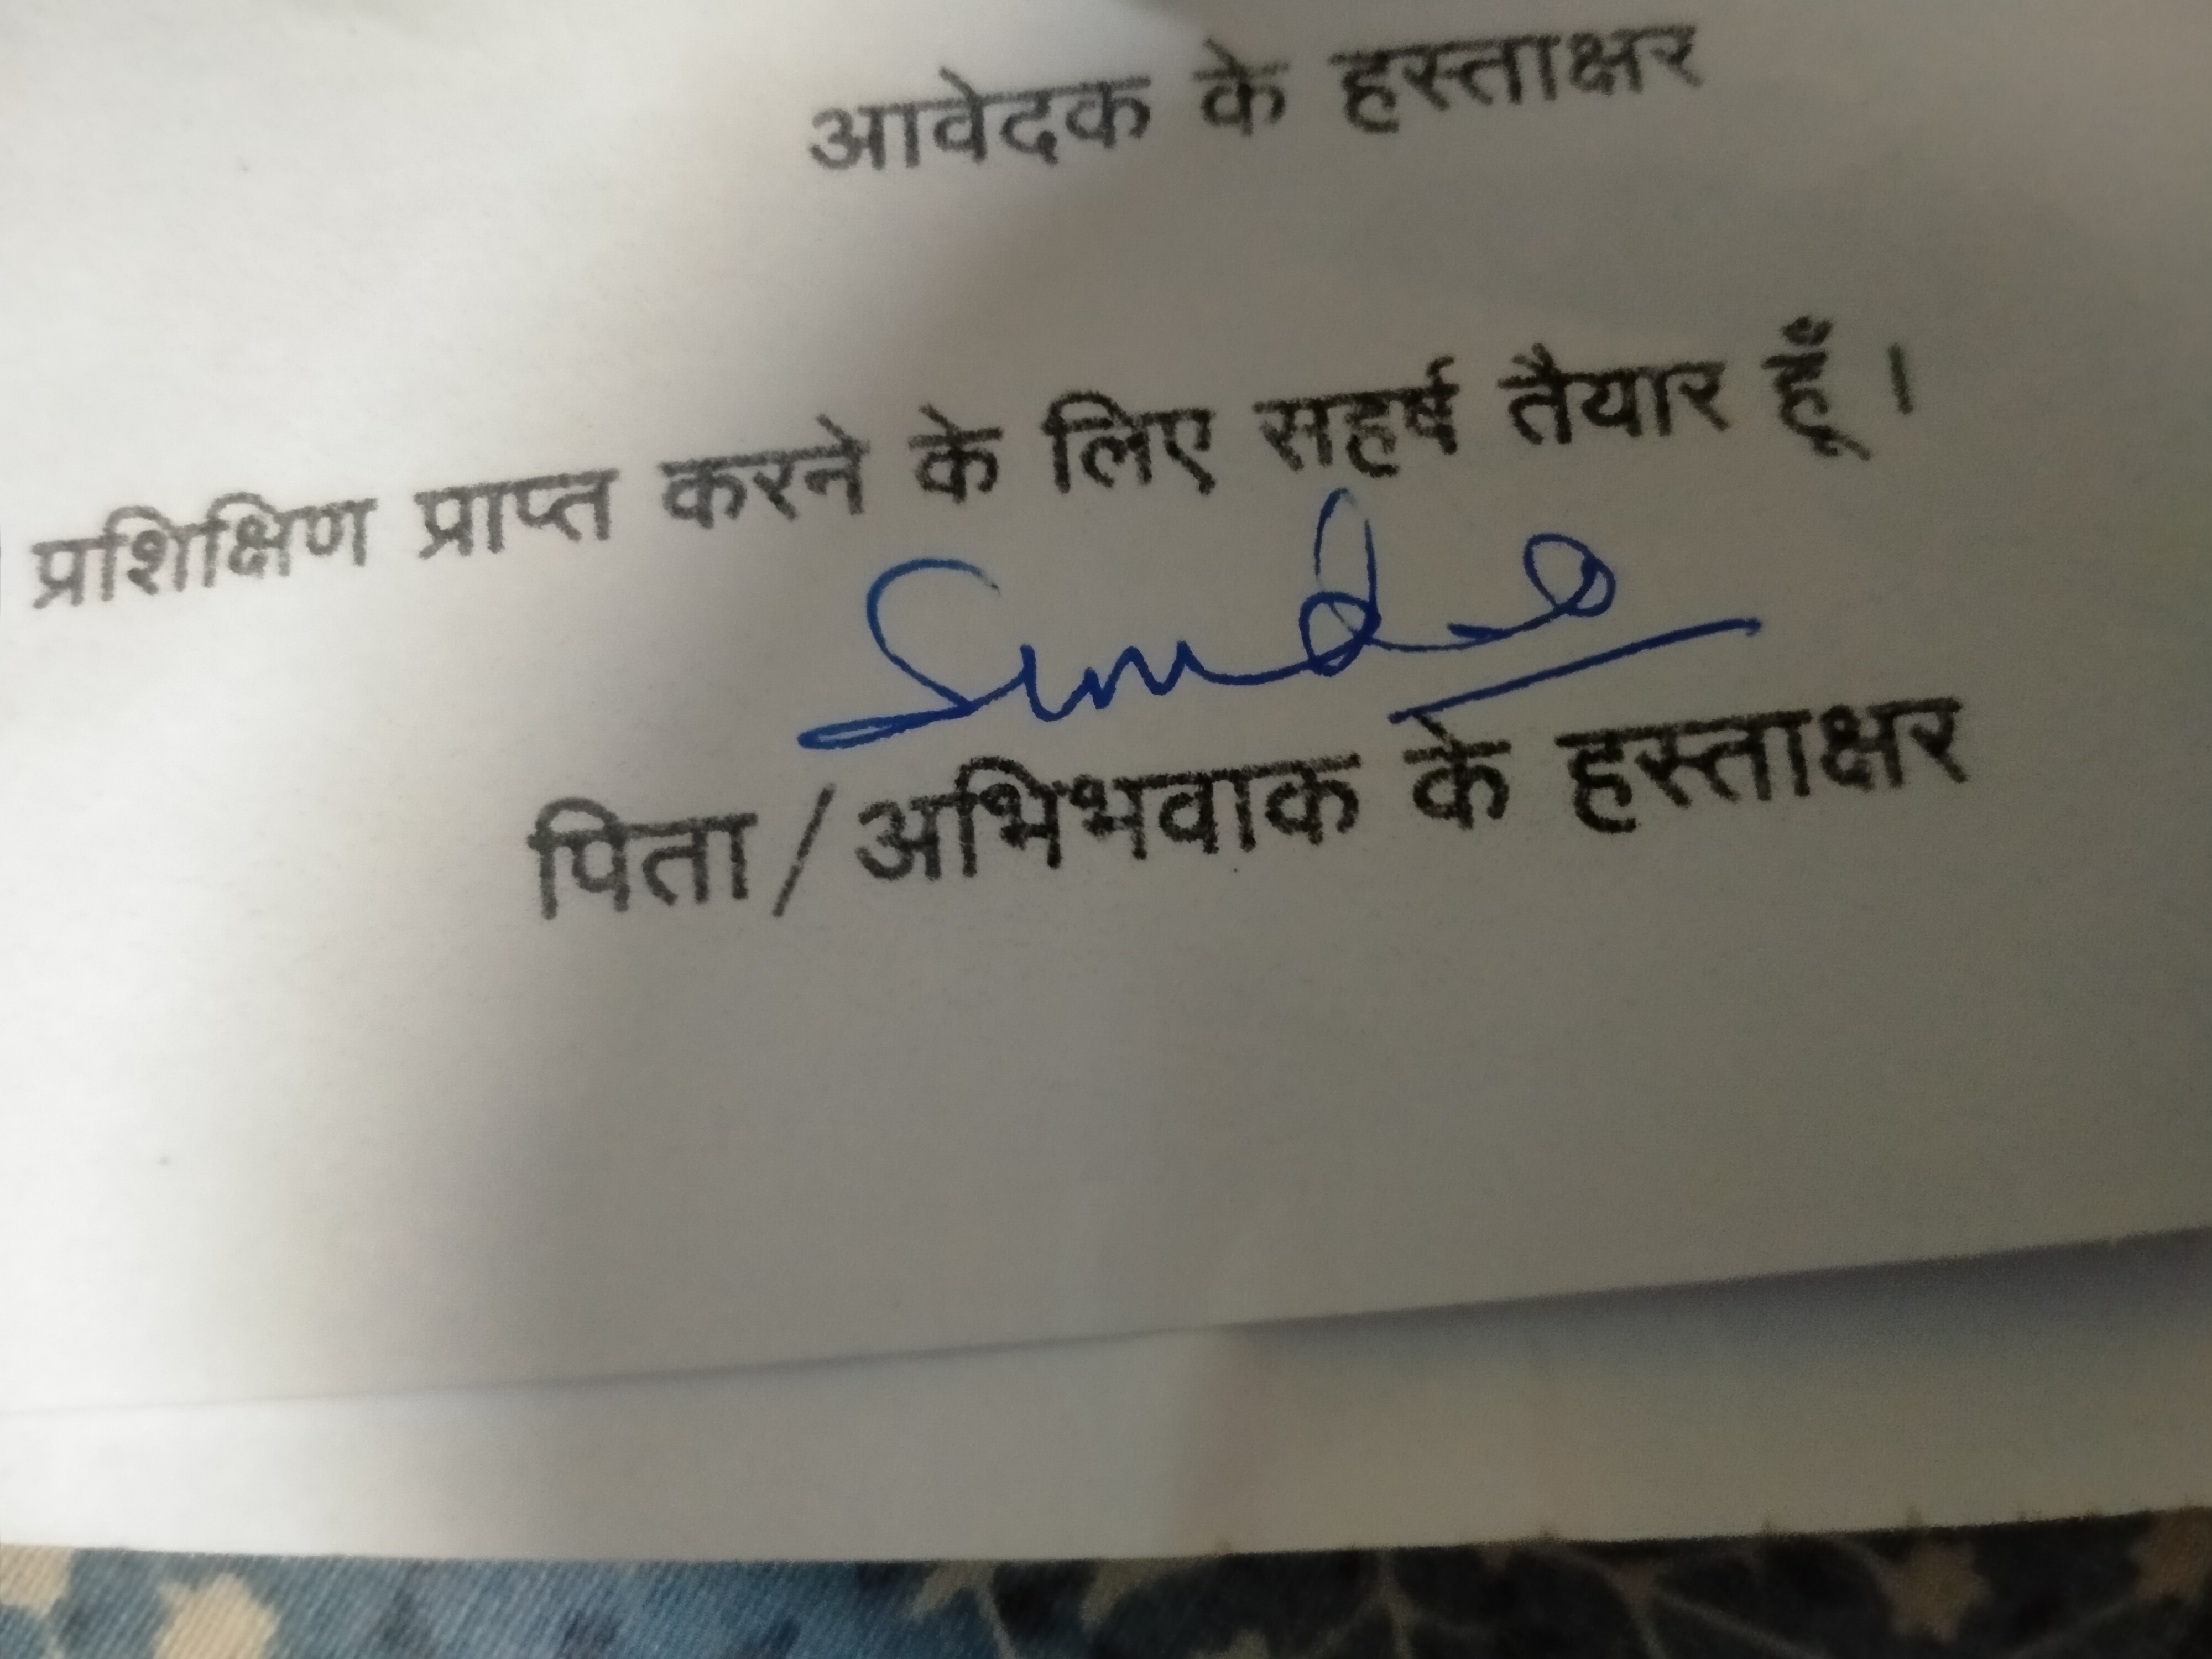 आवेदक के हस्ताक्षर
प्रशिक्षिण प्राप्त करने के लिए सहर्ष तैयार हूँ ।
पिता / अभिभवाक के हस्ताक्षर